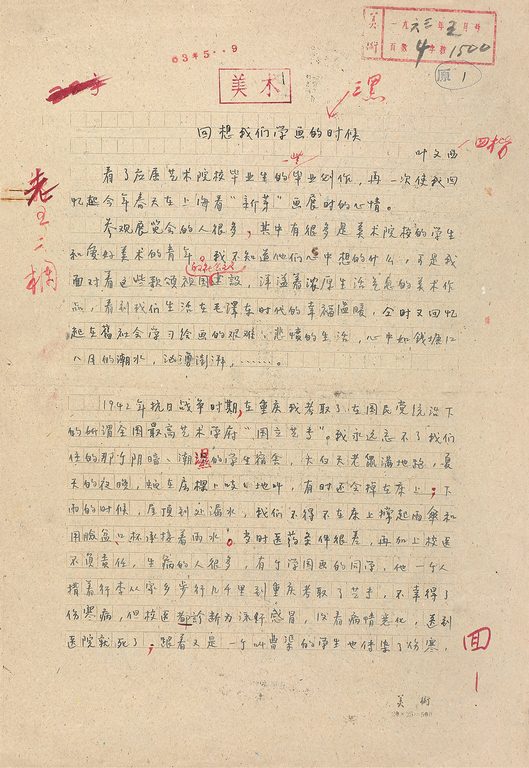 美術
一九六三年五月号
百数 4 字数 1500
63年5..9
美术
原 1
三黑
回想我们学画的时候
叶文西
四楷
看了应届艺术院校毕业生的一些毕业创作,再一次使我回
忆起今年春天在上海看“新芽”画展时的心情。
参观展览会的人很多,其中有很多是美术院校的学生
和爱好美术的青年。我不知道他们心中想的什么,可是我
面对着这些歌颂祖国的社会主义建设,洋溢着浓厚生活气息的美术作
品,看到我们生活在毛泽东时代的幸福温暖,令时又回忆
起在旧社会学习绘画的艰难、悲愤的生活,心中如钱塘江
八月的潮水,汹涌澎湃,……。
1942年抗日战争时期,在重庆我考取了在国民党统治下
的所谓全国最高艺术学府“国立艺专”。我永远忘不了我们
住的那个阴暗、潮湿的学生宿舍,大白天老鼠满地跑,夏
天的夜晚,蛇在房樑上吱吱地叫,有时还会掉在床上;下
雨的时候,屋顶到处漏水,我们不得不在床上撑起雨伞和
用脸盆口杯承接着雨水。当时医药条件很差,再加上校医
不负责任,生病的人很多,有个学国画的同学,他一个人
揹着行李从家乡步行几千里到重庆考取了艺专,不幸得了
伤寒病,但校医却诊断为流行感冒,没看病情恶化,送到
医院就死了;跟着又是一个叫曹梁的学生也传染了伤寒,
老五
二楷
回
美術
20×25=500